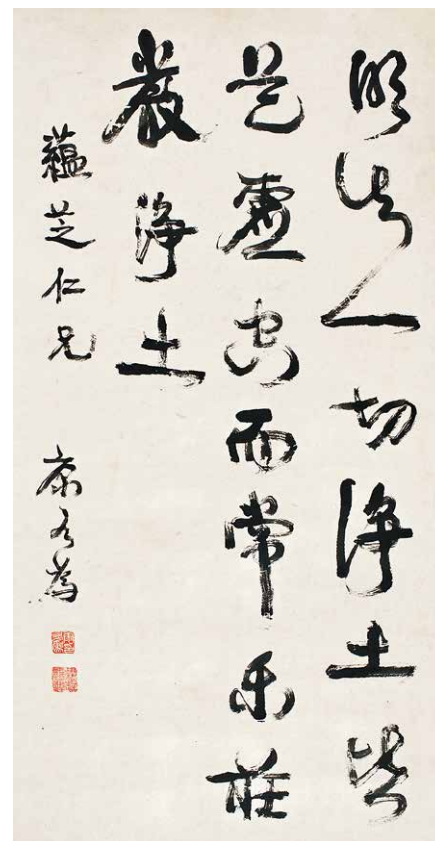 明知一切淨土皆
是虛空而常樂莊
嚴淨土
蘊芝仁兄
康有為